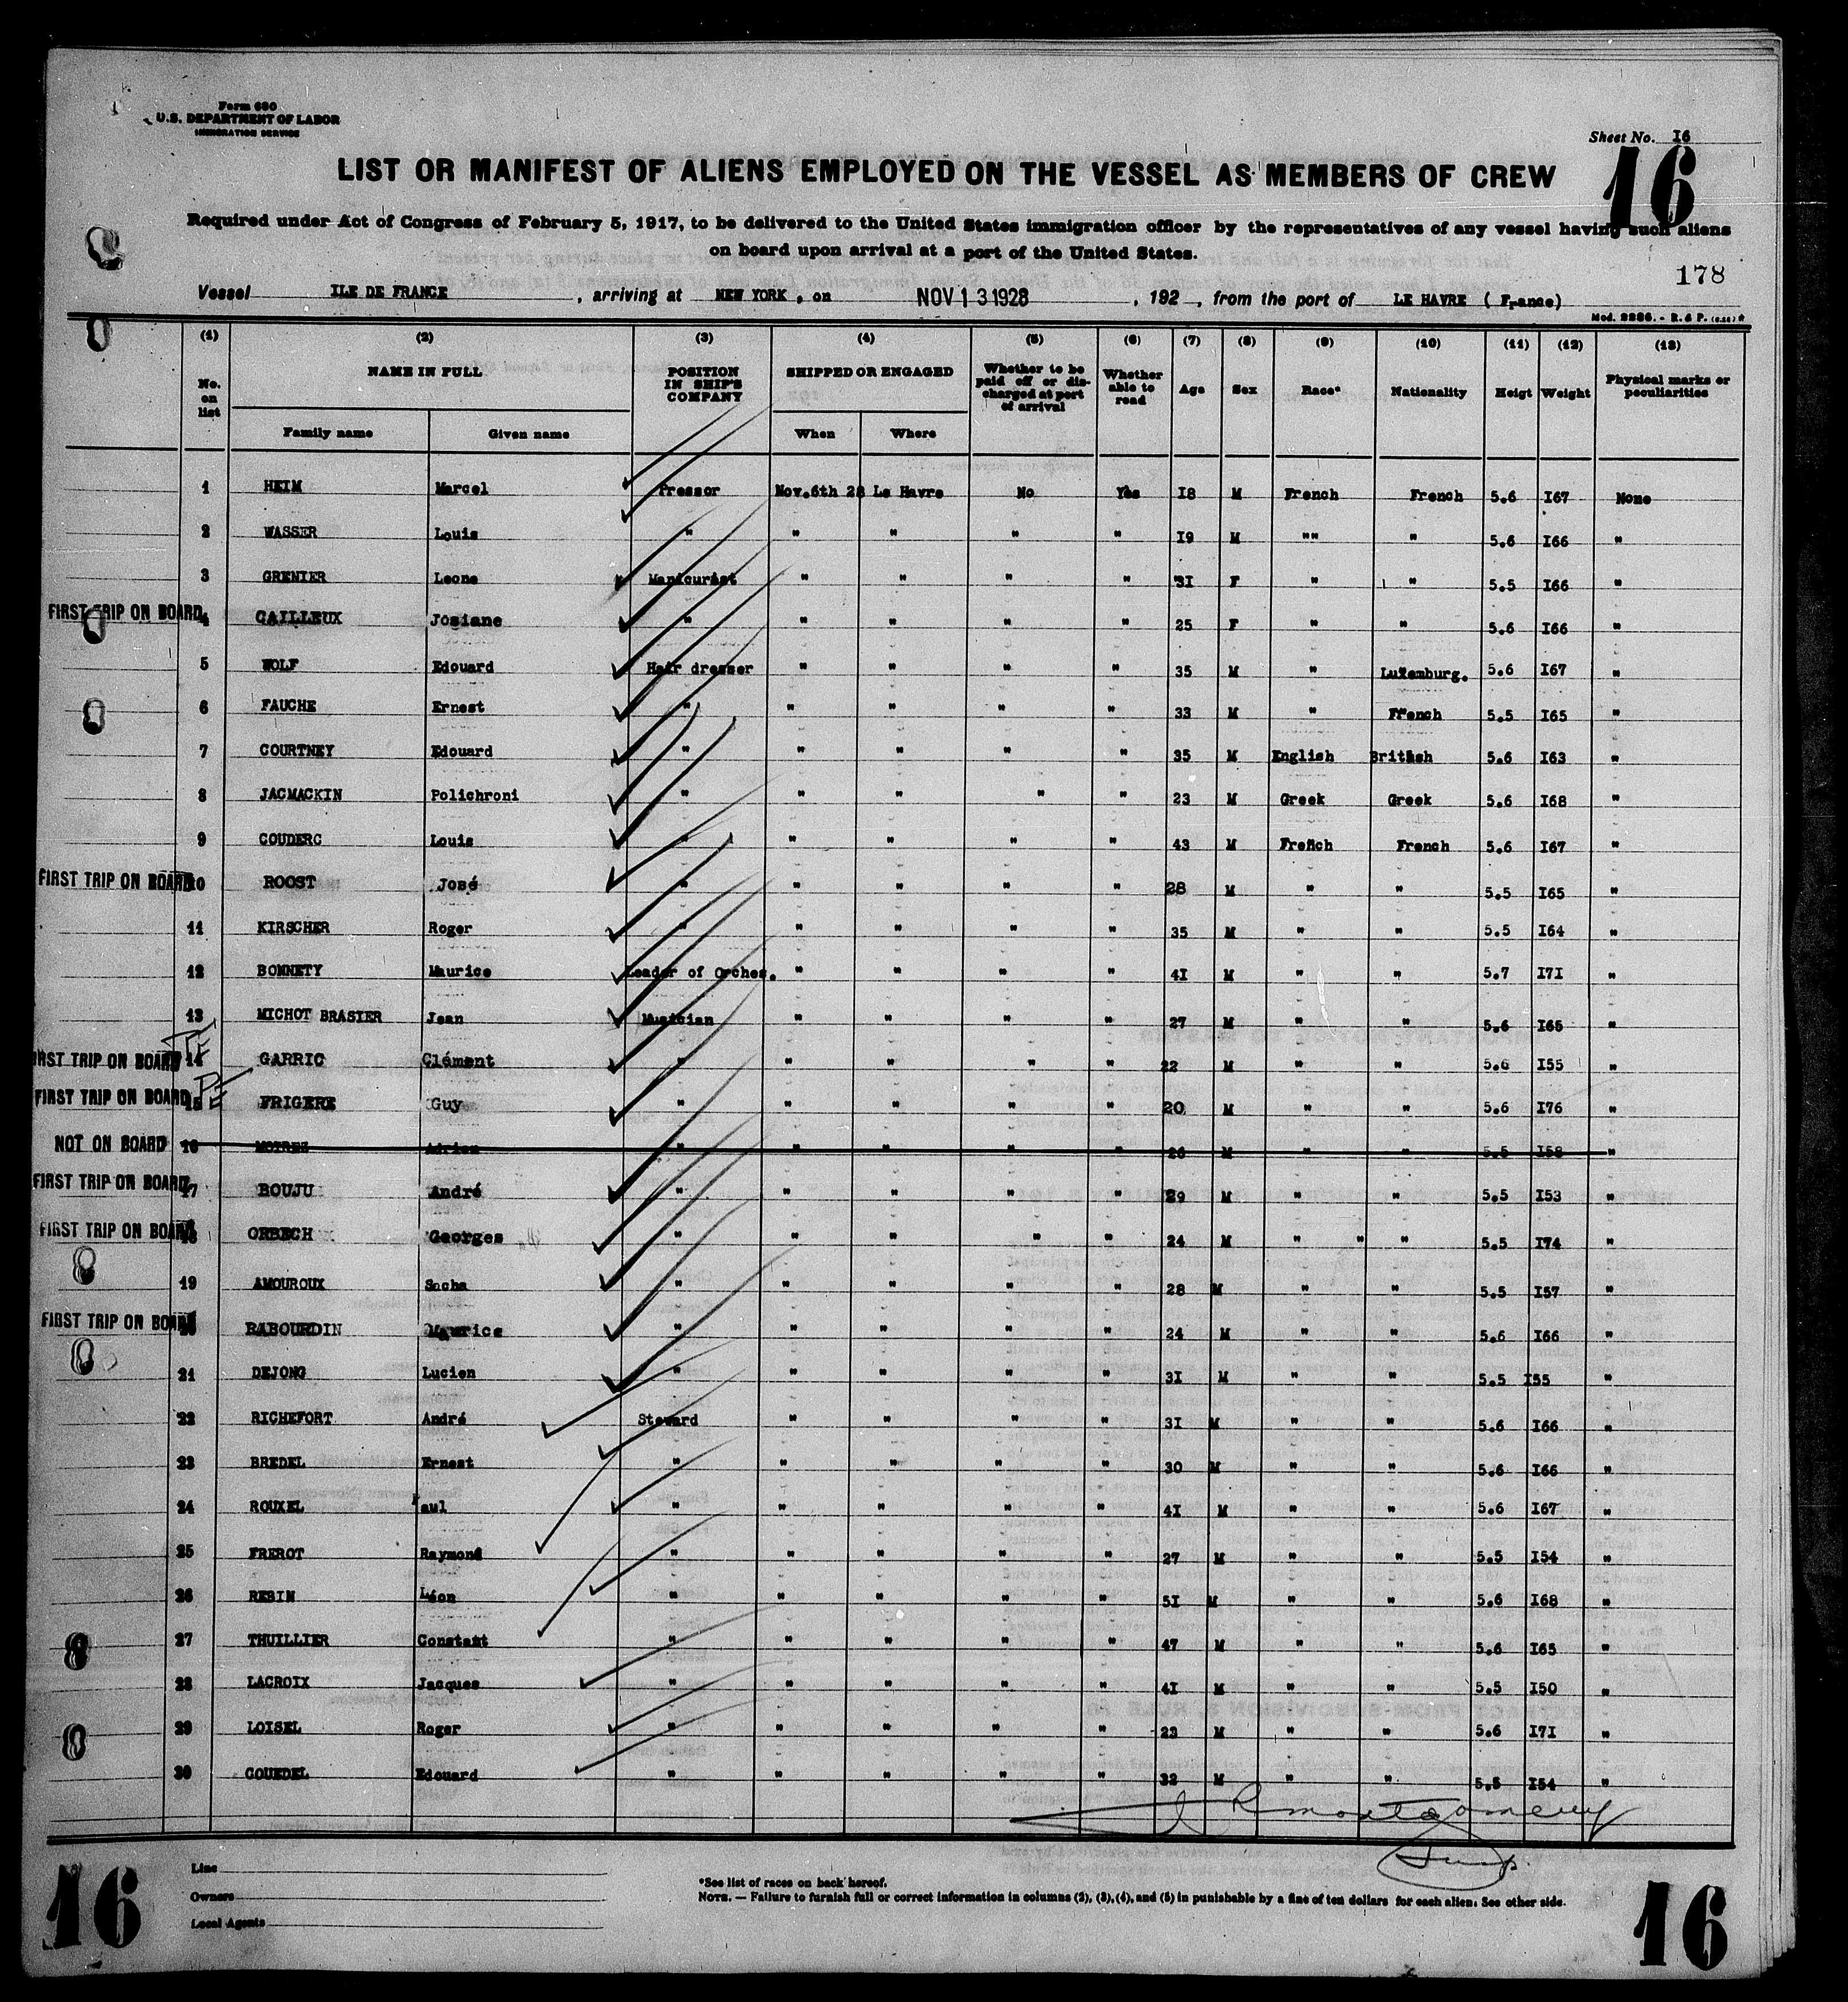 Form 680
U.S. DEPARTMENT OF LABOR
IMMIGRATION SERVICE
Sheet No. I6
16
LIST OR MANIFEST OF ALIENS EMPLOYED ON THE VESSEL AS MEMBERS OF CREW
Required under Act of Congress of February 5, 1917, to be delivered to the United States immigration officer by the representatives of any vessel having such aliens
on board upon arrival at a port of the United States.
178
Vessel ILE DE FRANCE , arriving at NEW YORK , on NOV 1 3 1928 , 192 , from the port of LE HAVRE ( France)
Mod. 2286. - R. & P.
(1) (2) (3) (4) (5) (6) (7) (8) (9) (10) (11) (12) (13)
No. on list NAME IN FULL POSITION IN SHIP'S COMPANY SHIPPED OR ENGAGED Whether to be paid off or discharged at port of arrival Whether able to read Age Sex Race* Nationality Heigt Weight Physical marks or peculiarities
Family name Given name When Where
1 HEIM Marcel Pressor Nov.6th 28 Le Havre No Yes I8 M French French 5.6 I67 None
2 WASSER Louis " " " " " I9 M "" " 5.6 I66 "
3 GRENIER Leone Manicurist " " " " 3I F " " 5.5 I66 "
FIRST TRIP ON BOARD 4 CAILLEUX Josiane " " " " " 25 F " " 5.6 I66 "
5 WOLF Edouard Hair dresser " " " " 35 M " Luxemburg. 5.6 I67 "
6 FAUCHE Ernest " " " " " 33 M " French 5.5 I65 "
7 COURTNEY Edouard " " " " " 35 M English British 5.6 I63 "
8 JACMACKIN Polichroni " " " " " 23 M Greek Greek 5.6 I68 "
9 COUDERC Louis " " " " " 43 M French French 5.6 I67 "
FIRST TRIP ON BOARD 10 ROOST José " " " " " 28 M " " 5.5 I65 "
11 KIRSCHER Roger " " " " " 35 M " " 5.5 I64 "
12 BONNETY Maurice Leader of Orches. " " " " 4I M " " 5.7 I7I "
13 MICHOT BRASIER Jean Musician " " " " 27 M " " 5.6 I65 "
FIRST TRIP ON BOARD 14 GARRIC Clément " " " " " 22 M " " 5.6 I55 "
FIRST TRIP ON BOARD 15 FRIGERE Guy " " " " " 20 M " " 5.6 I76 "
NOT ON BOARD 16 Adrien " " " " " 26 M " " 5.5 I58 "
FIRST TRIP ON BOARD 17 BOUJU André " " " " " 29 M " " 5.5 I53 "
FIRST TRIP ON BOARD 18 ORBECH Georges " " " " " 24 M " " " 5.5 I74 "
19 AMOUROUX Sacha " " " " " 28 M " " 5.5 I57 "
FIRST TRIP ON BOARD 20 RABOURDIN Maurice " " " " " 24 M " " 5.6 I66 "
21 DEJONG Lucien " " " " " 3I M " " 5.5 I55 "
22 RICHEFORT André Steward " " " " 3I M " " 5.6 I66 "
23 BREDEL Ernest " " " " " 30 M " " 5.6 I66 "
24 ROUXEL Paul " " " " " 4I M " " 5.6 I67 "
25 FREROT Raymond " " " " " 27 M " " 5.5 I54 "
26 REBIN Léon " " " " " 5I M " " 5.6 I68 "
27 THUILLIER Constant " " " " " 47 M " " 5.6 I65 "
28 LACROIX Jacques " " " " " 4I M " " 5.5 I50 "
29 LOISEL Roger " " " " " 23 M " " 5.6 I7I "
30 GOUEDEL Edouard " " " " " 32 M " " 5.5 I54 "
R Montgomery
Insp.
16
Line
Owners
Local Agents
*See list of races on back hereof.
NOTE. — Failure to furnish full or correct information in columns (2), (3), (4), and (5) in punishable by a fine of ten dollars for each alien. See other side.
16